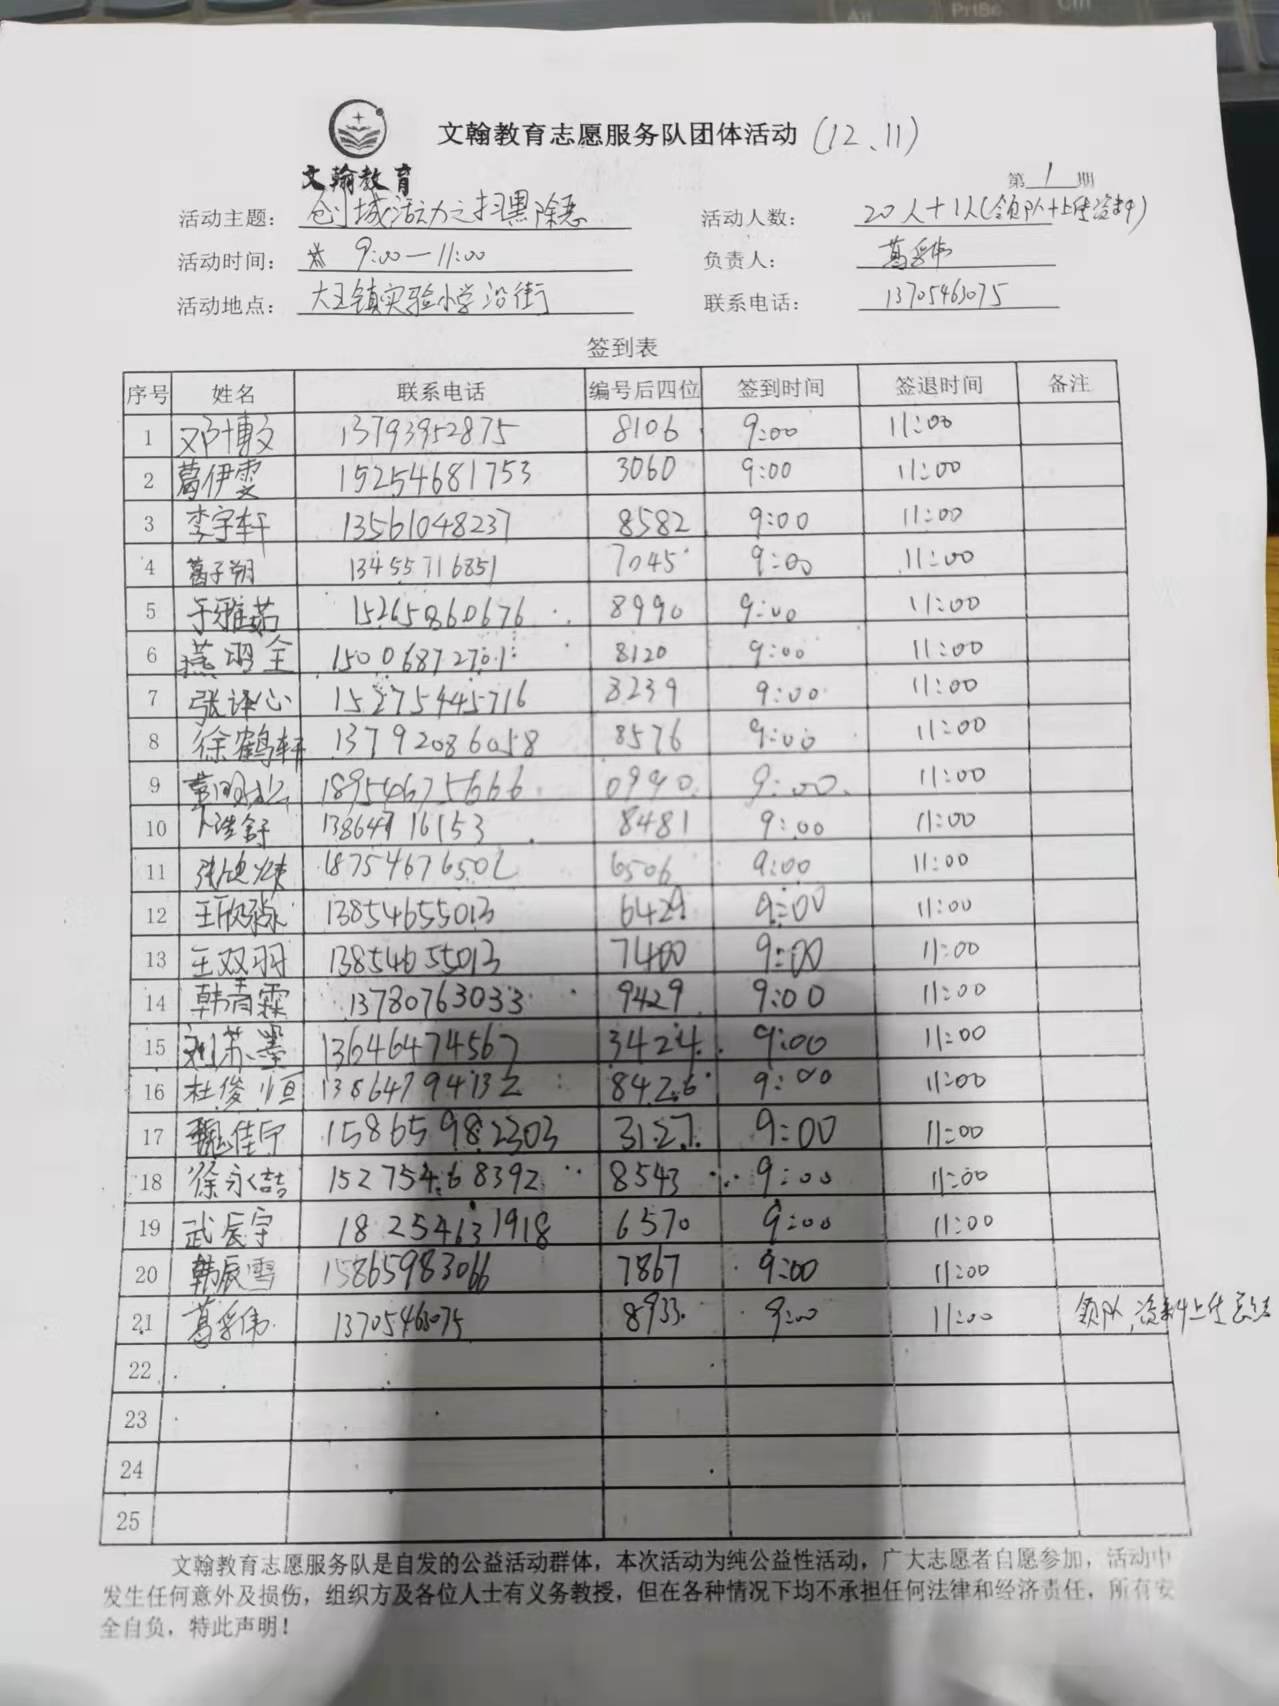 文翰教育志愿服务队团体活动 (12、11)
文翰教育
第 1 期
活动主题: 创城活动之扫黑除恶 活动人数: 20人+1人(领队+上传资料)
活动时间: 9:00—11:00 负责人:
活动地点: 大王镇实验小学沿街 联系电话: 13705463075
签到表
序号 姓名 联系电话 编号后四位 签到时间 签退时间 备注
1 邓博文 13793952875 8106 9:00 11:00
2 葛伊雯 15254681753 3060 9:00 11:00
3 李宇轩 13561048237 8582 9:00 11:00
4 葛子朔 13455716851 7045 9:00 11:00
5 于雅茹 15265860676 8990 9:00 11:00
6 15006872701 8120 9:00 11:00
7 张译心 15275445716 8239 9:00 11:00
8 徐鹤轩 13792086058 8576 9:00 11:00
9 18954675666 0990 9:00 11:00
10 13864716153 8481 9:00 11:00
11 18754676502 6506 9:00 11:00
12 13854655013 6429 9:00 11:00
13 王双羽 13854655013 7400 9:00 11:00
14 韩青霖 13780763033 9429 9:00 11:00
15 刘苏墨 13646474567 3424 9:00 11:00
16 杜俊恒 13864794132 8426 9:00 11:00
17 魏佳宁 15865982303 3127 9:00 11:00
18 徐永喆 15275468392 8543 9:00 11:00
19 武辰宇 18254631918 6570 9:00 11:00
20 韩辰雪 15865983066 7867 9:00 11:00
21 13705463075 8933 9:00 11:00 领队,资料上传
22
23
24
25
文翰教育志愿服务队是自发的公益活动群体，本次活动为纯公益性活动，广大志愿者自愿参加，活动中
发生任何意外及损伤，组织方及各位人士有义务教授，但在各种情况下均不承担任何法律和经济责任，所有安
全自负，特此声明！